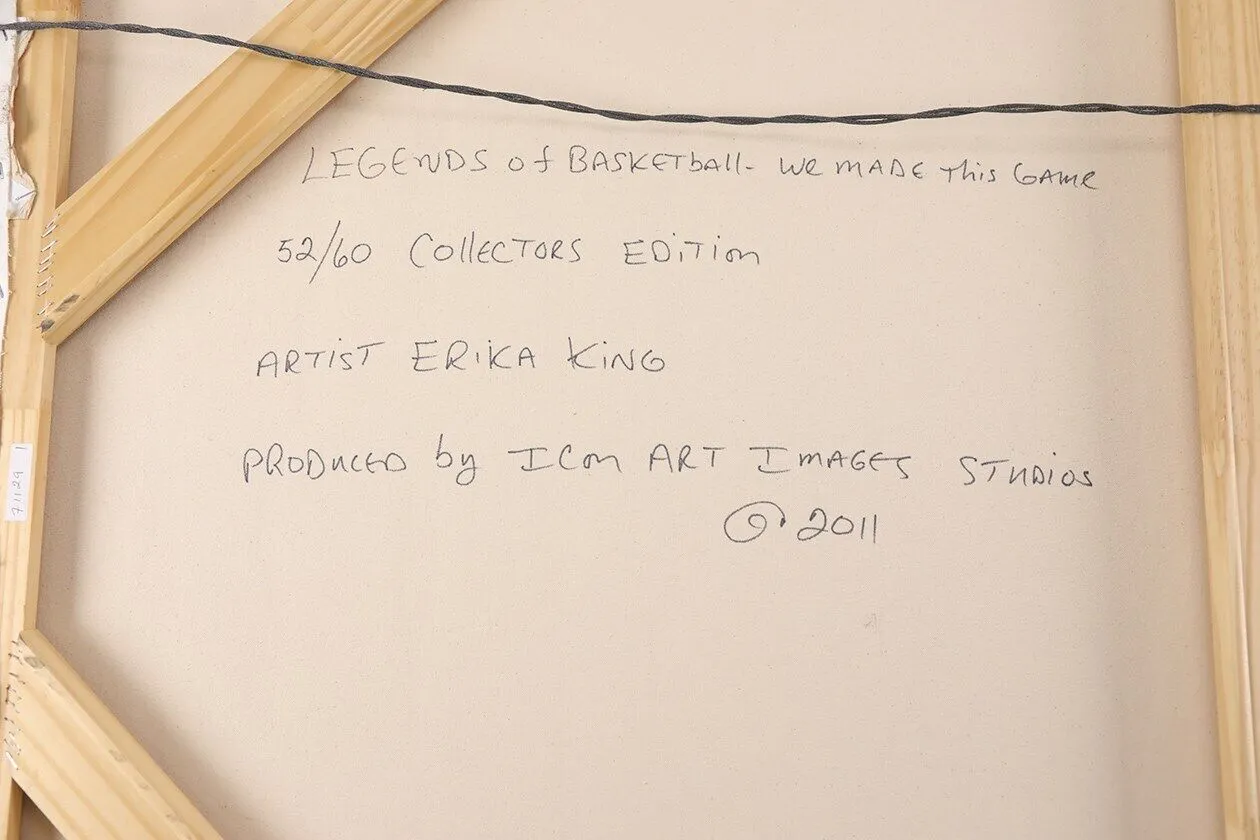 LEGENDS of BASKETball - WE MADE This GAME
52/60 COllECTORS EDiTion
ARTiST ERiKA KiNG
PRODUCED by ICon ART IMAGES STUDiOS
© 2011
71129